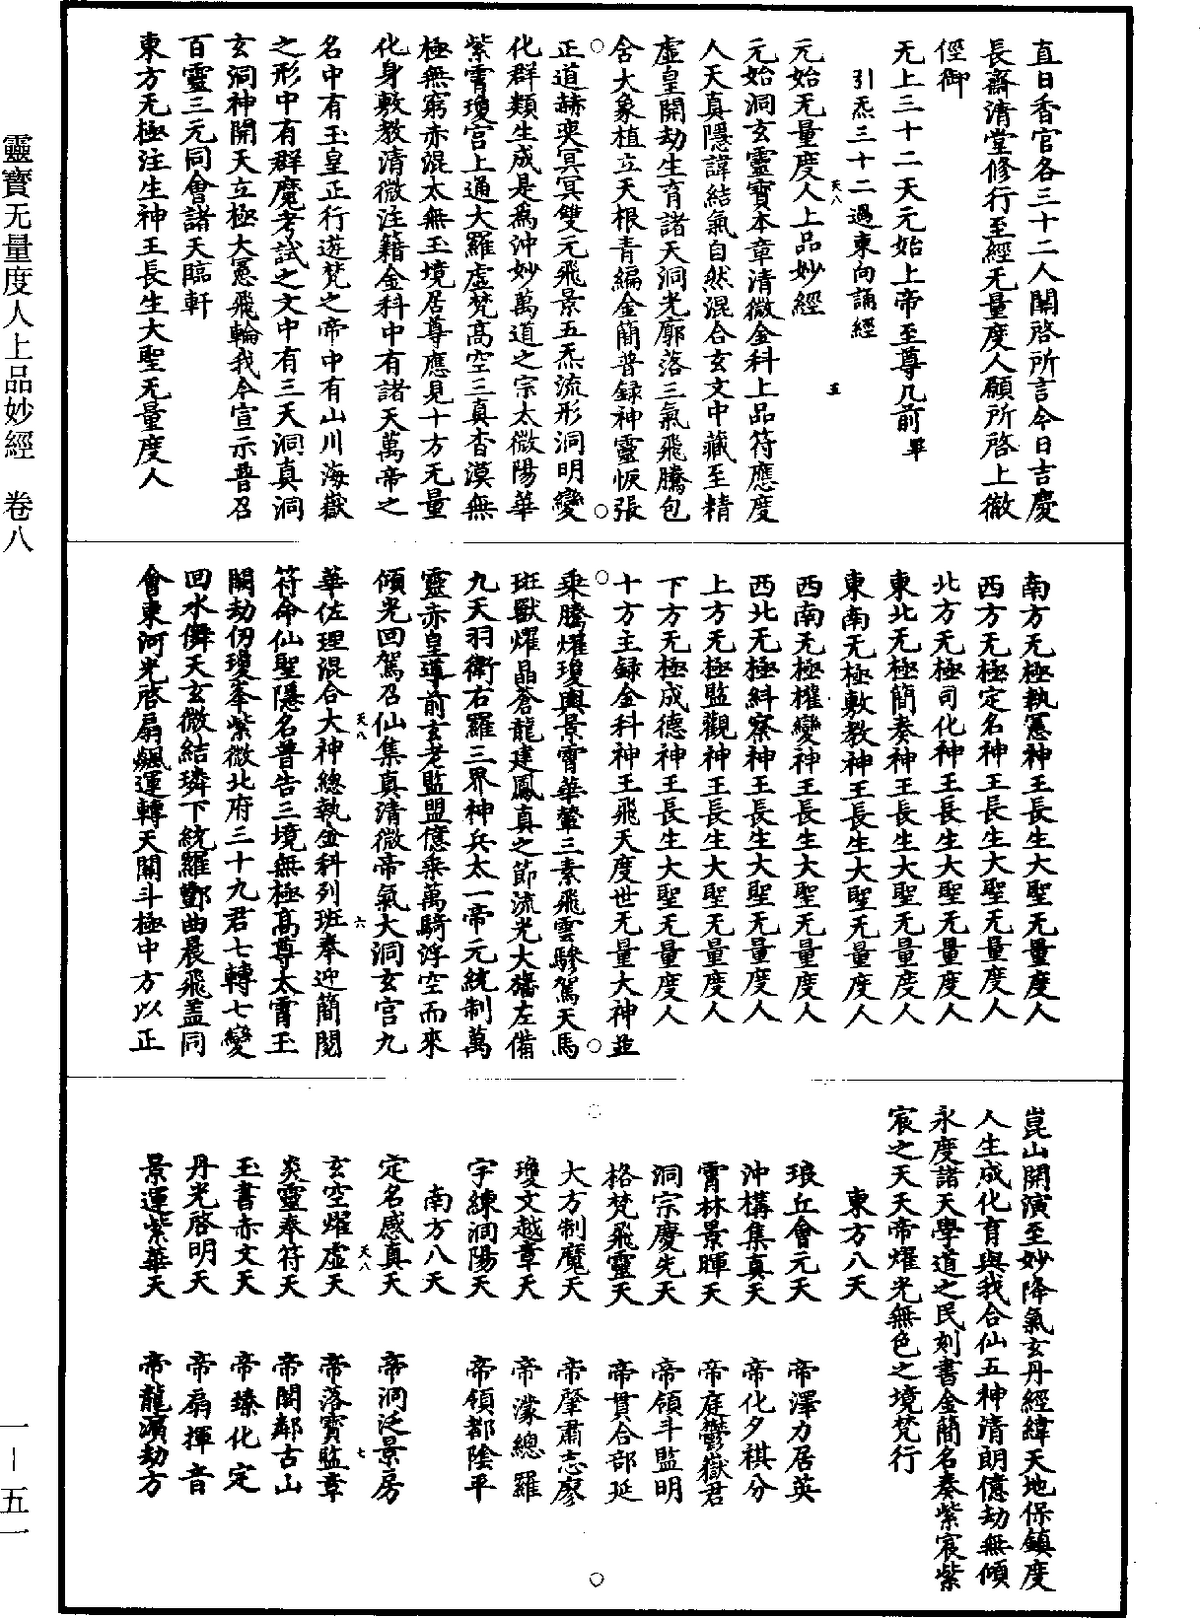 直日香官各三十二人關啓所言今日吉慶
長齋清堂修行至經无量度人願所啓上徹
徑御
无上三十二天元始上帝至尊几前畢
引炁三十二過東向誦經
元始无量度人上品妙經
天八 五
元始洞玄靈寶本章清微金科上品符應度
人天真隱諱結氣自然混合玄文中藏至精
虛皇開劫生育諸天洞光廓落三氣飛騰包
含大象植立天根青編金簡普録神靈恢張
正道赫奕冥冥雙元飛景五炁流形洞明變
化群類生成是爲沖妙萬道之宗太微陽華
紫霄瓊宮上通大羅虛梵高空三真杳漠無
極無窮赤混太無玉境居尊應見十方无量
化身敷教清微注籍金科中有諸天萬帝之
名中有玉皇正行遊梵之帝中有山川海嶽
之形中有群魔考試之文中有三天洞真洞
玄洞神開天立極大惡飛輪我今宣示普召
百靈三元同會諸天臨軒
東方无極注生神王長生大聖无量度人
南方无極執憲神王長生大聖无量度人
西方无極定名神王長生大聖无量度人
北方无極司化神王長生大聖无量度人
東北无極簡奏神王長生大聖无量度人
東南无極敷教神王長生大聖无量度人
西南无極權變神王長生大聖无量度人
西北无極糾察神王長生大聖无量度人
上方无極監觀神王長生大聖无量度人
下方无極成德神王長生大聖无量度人
十方主録金科神王飛天度世无量大神並
乘騰耀瓊輿景霄華輦三素飛雲驂駕天馬
班獸耀晶蒼龍建鳳真之節流光大旛左備
九天羽衛右羅三界神兵太一帝元統制萬
靈赤皇導前玄老監盟億乘萬騎浮空而來
傾光回駕召仙集真清微帝氣大洞玄宮九
天八 六
華佐理混合大神總執金科列班奉迎簡閱
符命仙聖隱名普告三境無極高尊太霄玉
關劫仞瓊峯紫微北府三十九君七轉七變
回水儛天玄微結璘下統羅酆曲晨飛蓋同
會東河光啓扇颷運轉天關斗極中方以正
崑山開演至妙降氣玄丹經緯天地保鎮度
人生成化育與我合仙五神清朗億劫無傾
永度諸天學道之民刻書金簡名奏紫宸紫
宸之天天帝耀光無色之境梵行
東方八天
琅丘會元天 帝澤力居英
沖構集真天 帝化夕祺分
霄林景暉天 帝庭鬱嶽君
洞宗慶先天 帝領斗監明
格梵飛靈天 帝貫合部延
大方制魔天 帝肇肅志廖
瓊文越章天 帝濛總羅
宇練洞陽天 帝領都陰平
南方八天
定名感真天 帝洞泛景房
天八 七
玄空耀虛天 帝落寶監章
炎靈奉符天 帝閣鄰古山
玉書赤文天 帝臻化定
丹光啓明天 帝扇揮音
景運紫華天 帝龍濱劫方
靈寶无量度人上品妙經 卷八
一—五一